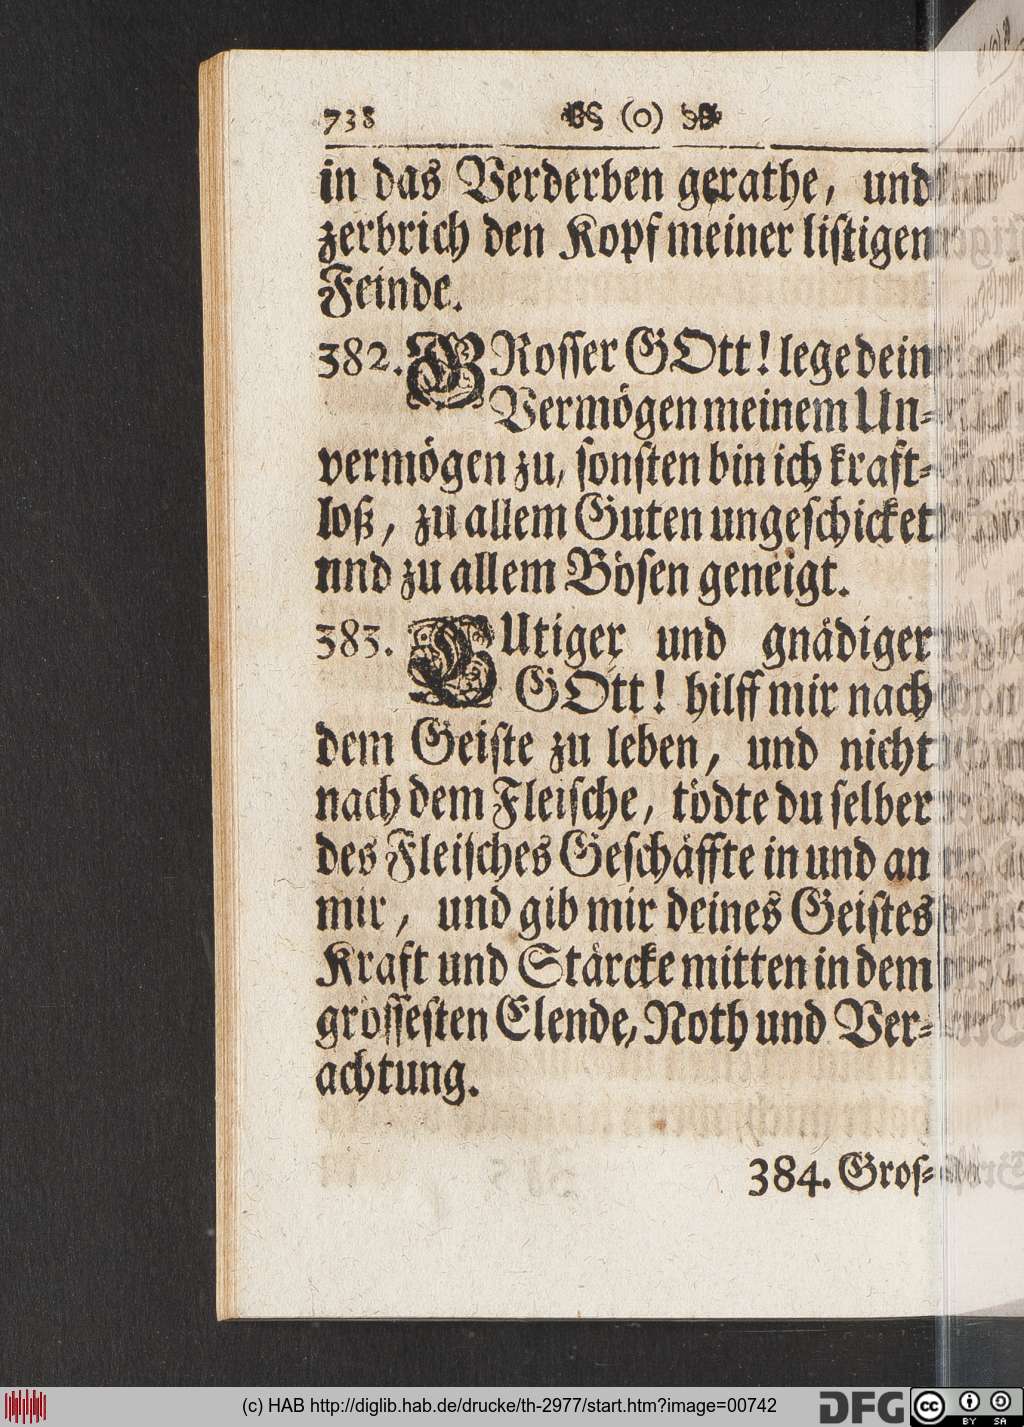 738 (o)
in das Verderben gerathe, und
zerbrich den Kopf meiner listigen
Feinde.
382. GRosser GOtt! lege dein
Vermögen meinem Un-
vermögen zu, sonsten bin ich kraft-
loß, zu allem Guten ungeschicket
nnd zu allem Bösen geneigt.
383. GUtiger und gnädiger
GOtt! hilff mir nach
dem Geiste zu leben, und nicht
nach dem Fleische, tödte du selber
des Fleisches Geschäffte in und an
mir, und gib mir deines Geistes
Kraft und Stärcke mitten in dem
grössesten Elende, Noth und Ver-
achtung.
384. Gros-
(c) HAB http://diglib.hab.de/drucke/th-2977/start.htm?image=00742
DFG
cc BY SA